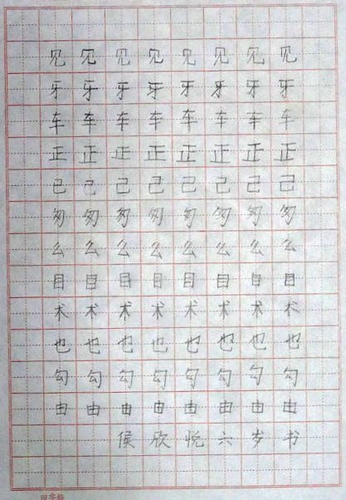 见见见见见见见见
牙牙牙牙牙牙牙牙
车车车车车车车车
正正正正正正正正
己己己己己己己己
匆匆匆匆匆匆匆匆
么么么么么么么么
目目目目目目目目
术术术术术术术术
也也也也也也也也
勾勾勾勾勾勾勾勾
由由由由由由由由
侯欣悦六岁书